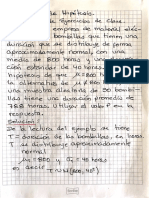 de Hipótesis
Ejercicios de Clase
empresa de material eléc-
bombillas que tienen una
duración que se distribuye de forma
aproximadamente normal, con una
media de 800 horas y una
estándar de 40 horas.
hipótesis de que μ=800 horas
la alternativa de μ≠800 horas
una muestra aleatoria de 30 bombi-
llas tiene una duración promedio de
788 Utilice el valor P en la
respuesta.
Solución:
De la lectura del ejemplo se tiene
T = duración de las bombillas, en horas
T se distribuye aproximadamente normal
μ=800 horas y σ=40 horas
es decir
T~N(800, 40²).